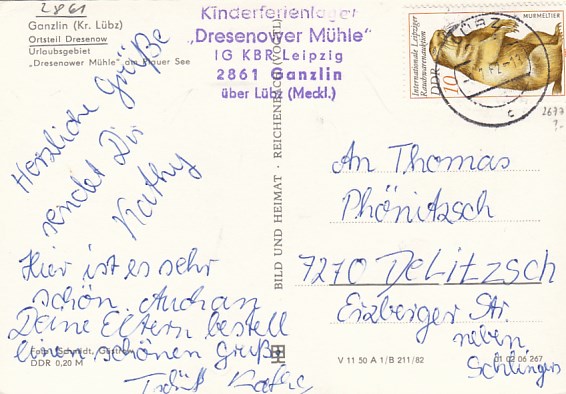 2861
Ganzlin (Kr. Lübz)
Ortsteil Dresenow
Urlaubsgebiet
„Dresenower Mühle" am Plauer See
Herzliche Grüße
sendet Dir
Kathy
Hier ist es sehr
schön. Auch an
Deine Eltern bestell
einen schönen Gruß
Tschüß Kathy
DDR 0,20 M
BILD UND HEIMAT · REICHENBACH (VOGTL)
Kinderferienlager
„Dresenower Mühle"
IG KBR Leipzig
2861 Ganzlin
über Lübz (Meckl.)
MURMELTIER
Internationale Leipziger
Rauchwarenauktion
DDR 10
c
2677
An Thomas
Phönitzsch
7270 Delitzsch
Eizberger Str.
neben
V 11 50 A 1/B 211/82
01 02 06 267